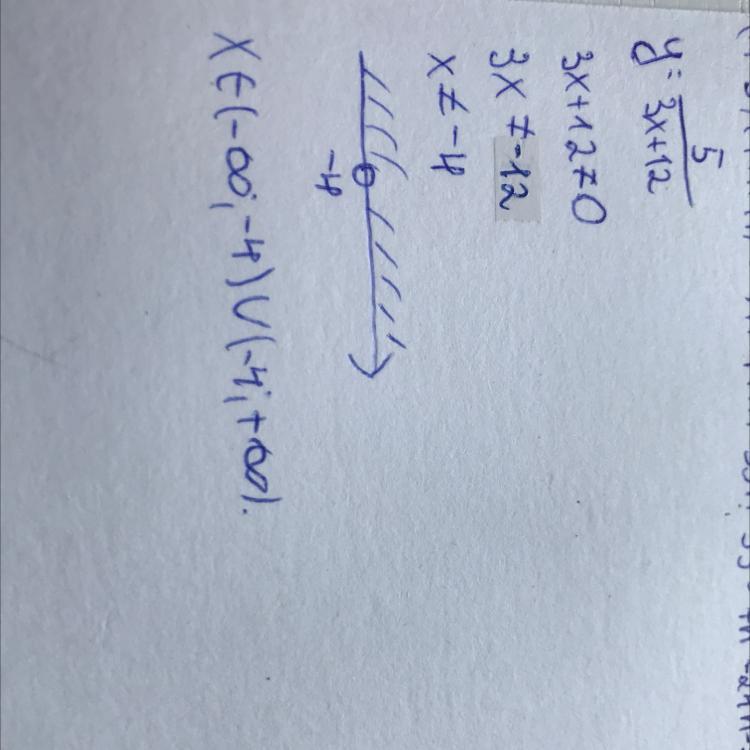 y = 5/(3x+12)
3x+12≠0
3x ≠ -12
x ≠ -4
-4
x ∈ (-∞; -4) ∪ (-4; +∞).